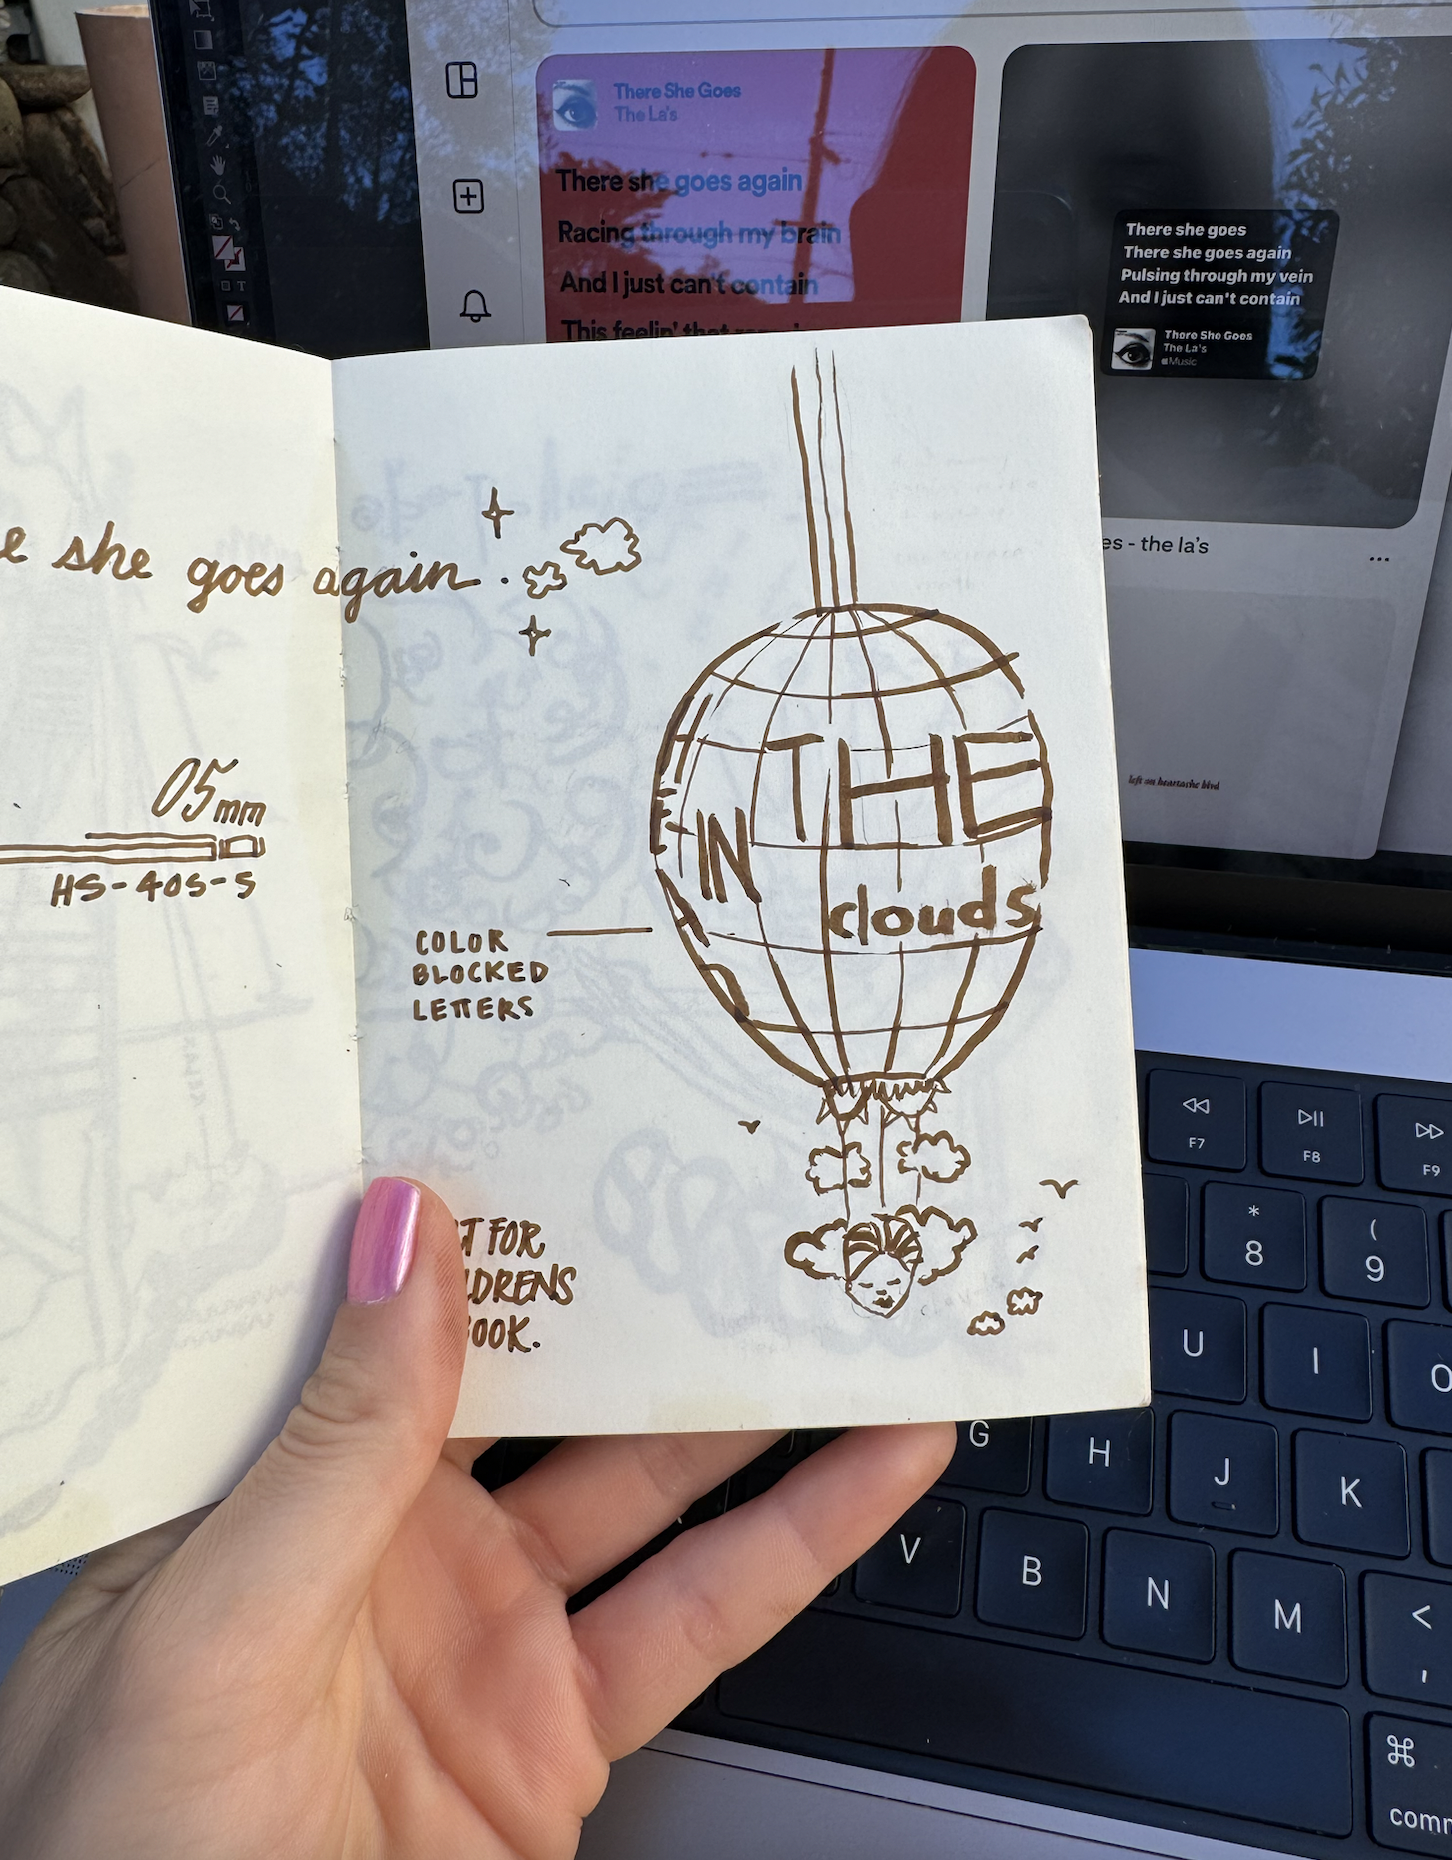 There She Goes
The La's
There she goes again
Racing through my brain
And I just can't contain
This feelin' that
There she goes
There she goes again
Pulsing through my vein
And I just can't contain
There She Goes
The La's
Music
es - the la's
...
left on heartache blvd
e she goes again.
05mm
HS-405-5
COLOR
BLOCKED
LETTERS
THE
IN
clouds
T FOR
LDRENS
OOK.
F7
F8
F9
*
8
(
9
U
I
O
G
H
J
K
V
B
N
M
<
,
⌘
comm
T